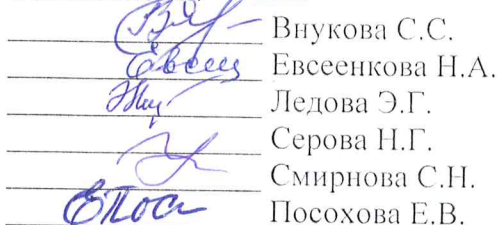 Внукова С.С.
Евсеенкова Н.А.
Ледова Э.Г.
Серова Н.Г.
Смирнова С.Н.
Посохова Е.В.